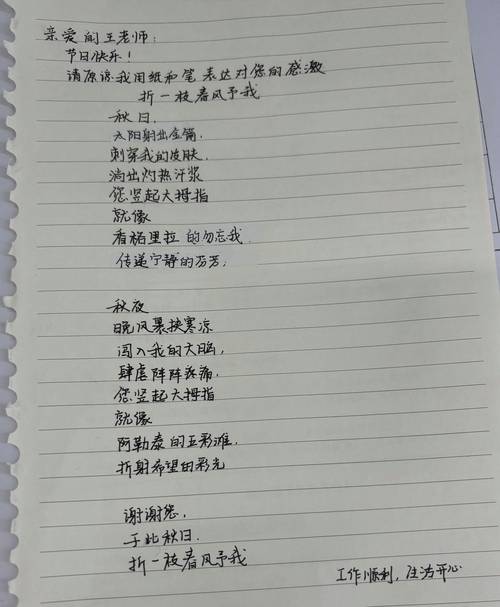 亲爱的王老师:
节日快乐!
请原谅我用纸和笔表达对您的感激
折一枝春风予我
秋日,
太阳射出金箭,
刺穿我的皮肤,
淌出灼热汗浆
您竖起大拇指
就像
香格里拉的勿忘我
传递宁静的芬芳,
秋夜
晚风裹挟寒凉
闯入我的大脑,
肆虐阵阵疼痛,
您竖起大拇指
就像
阿勒泰的五彩滩,
折射希望的彩光
谢谢您,
于此秋日,
折一枝春风予我
工作顺利,生活开心